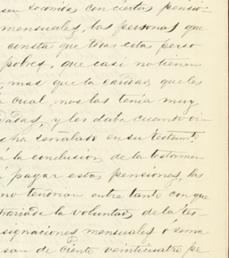 sean socorridas con ciertas pensio-
mensuales, las personas que
consta que todas estas perso
pobres, que casi no tienen
mas que la caridad que les
cual, nos las tenia muy
dadas, y les daba cuando vi-
ha señalado en su testam.
á la conclusion de la testamen
pagar estas pensiones, las
no tendrian entre tanto con que
la voluntad de la tes-
signaciones mensuales ó soma
san de ciento veinticuatro pe